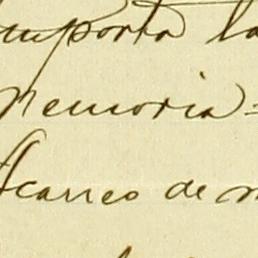 importa la
memoria=
Acarreo de